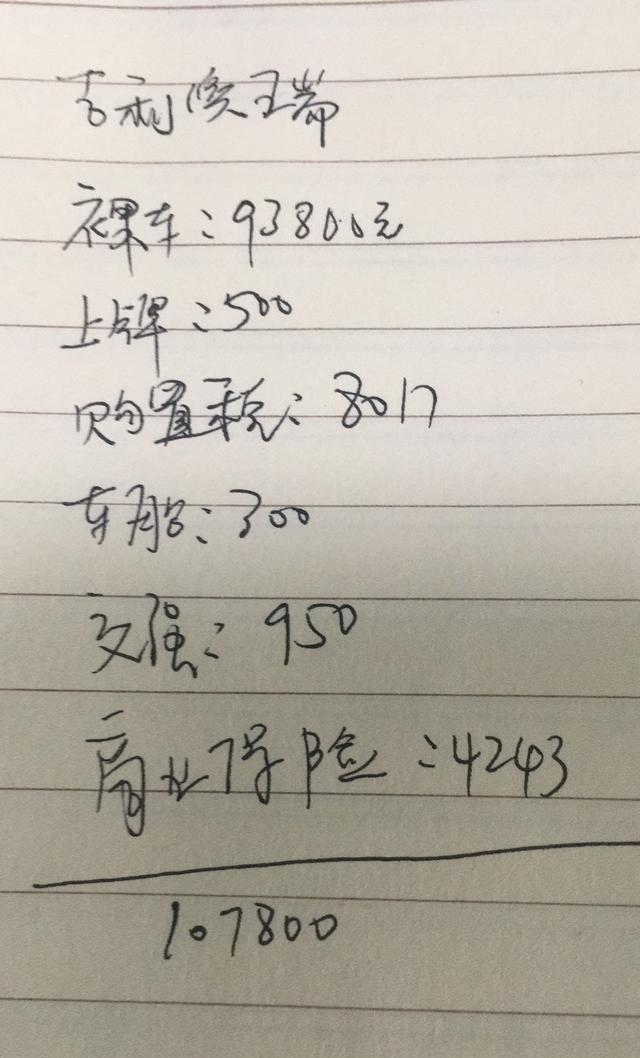 吉利缤瑞
裸车：93800元
上牌：500
购置税：8017
车船：300
交强：950
商业保险：4243
107800